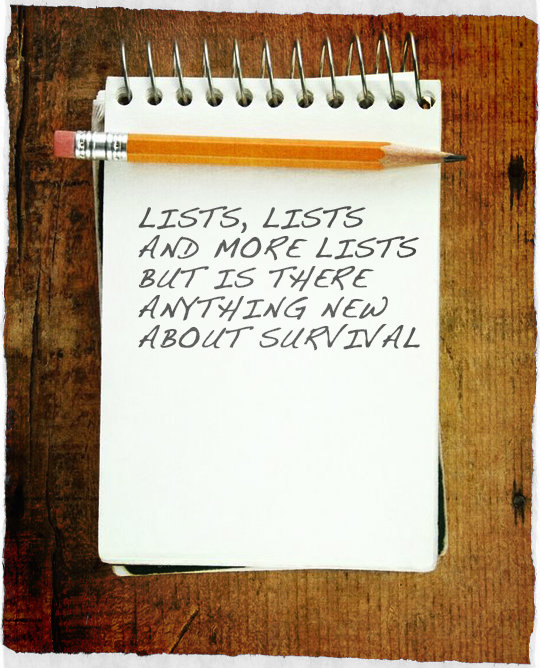 LISTS, LISTS
AND MORE LISTS
BUT IS THERE
ANYTHING NEW
ABOUT SURVIVAL